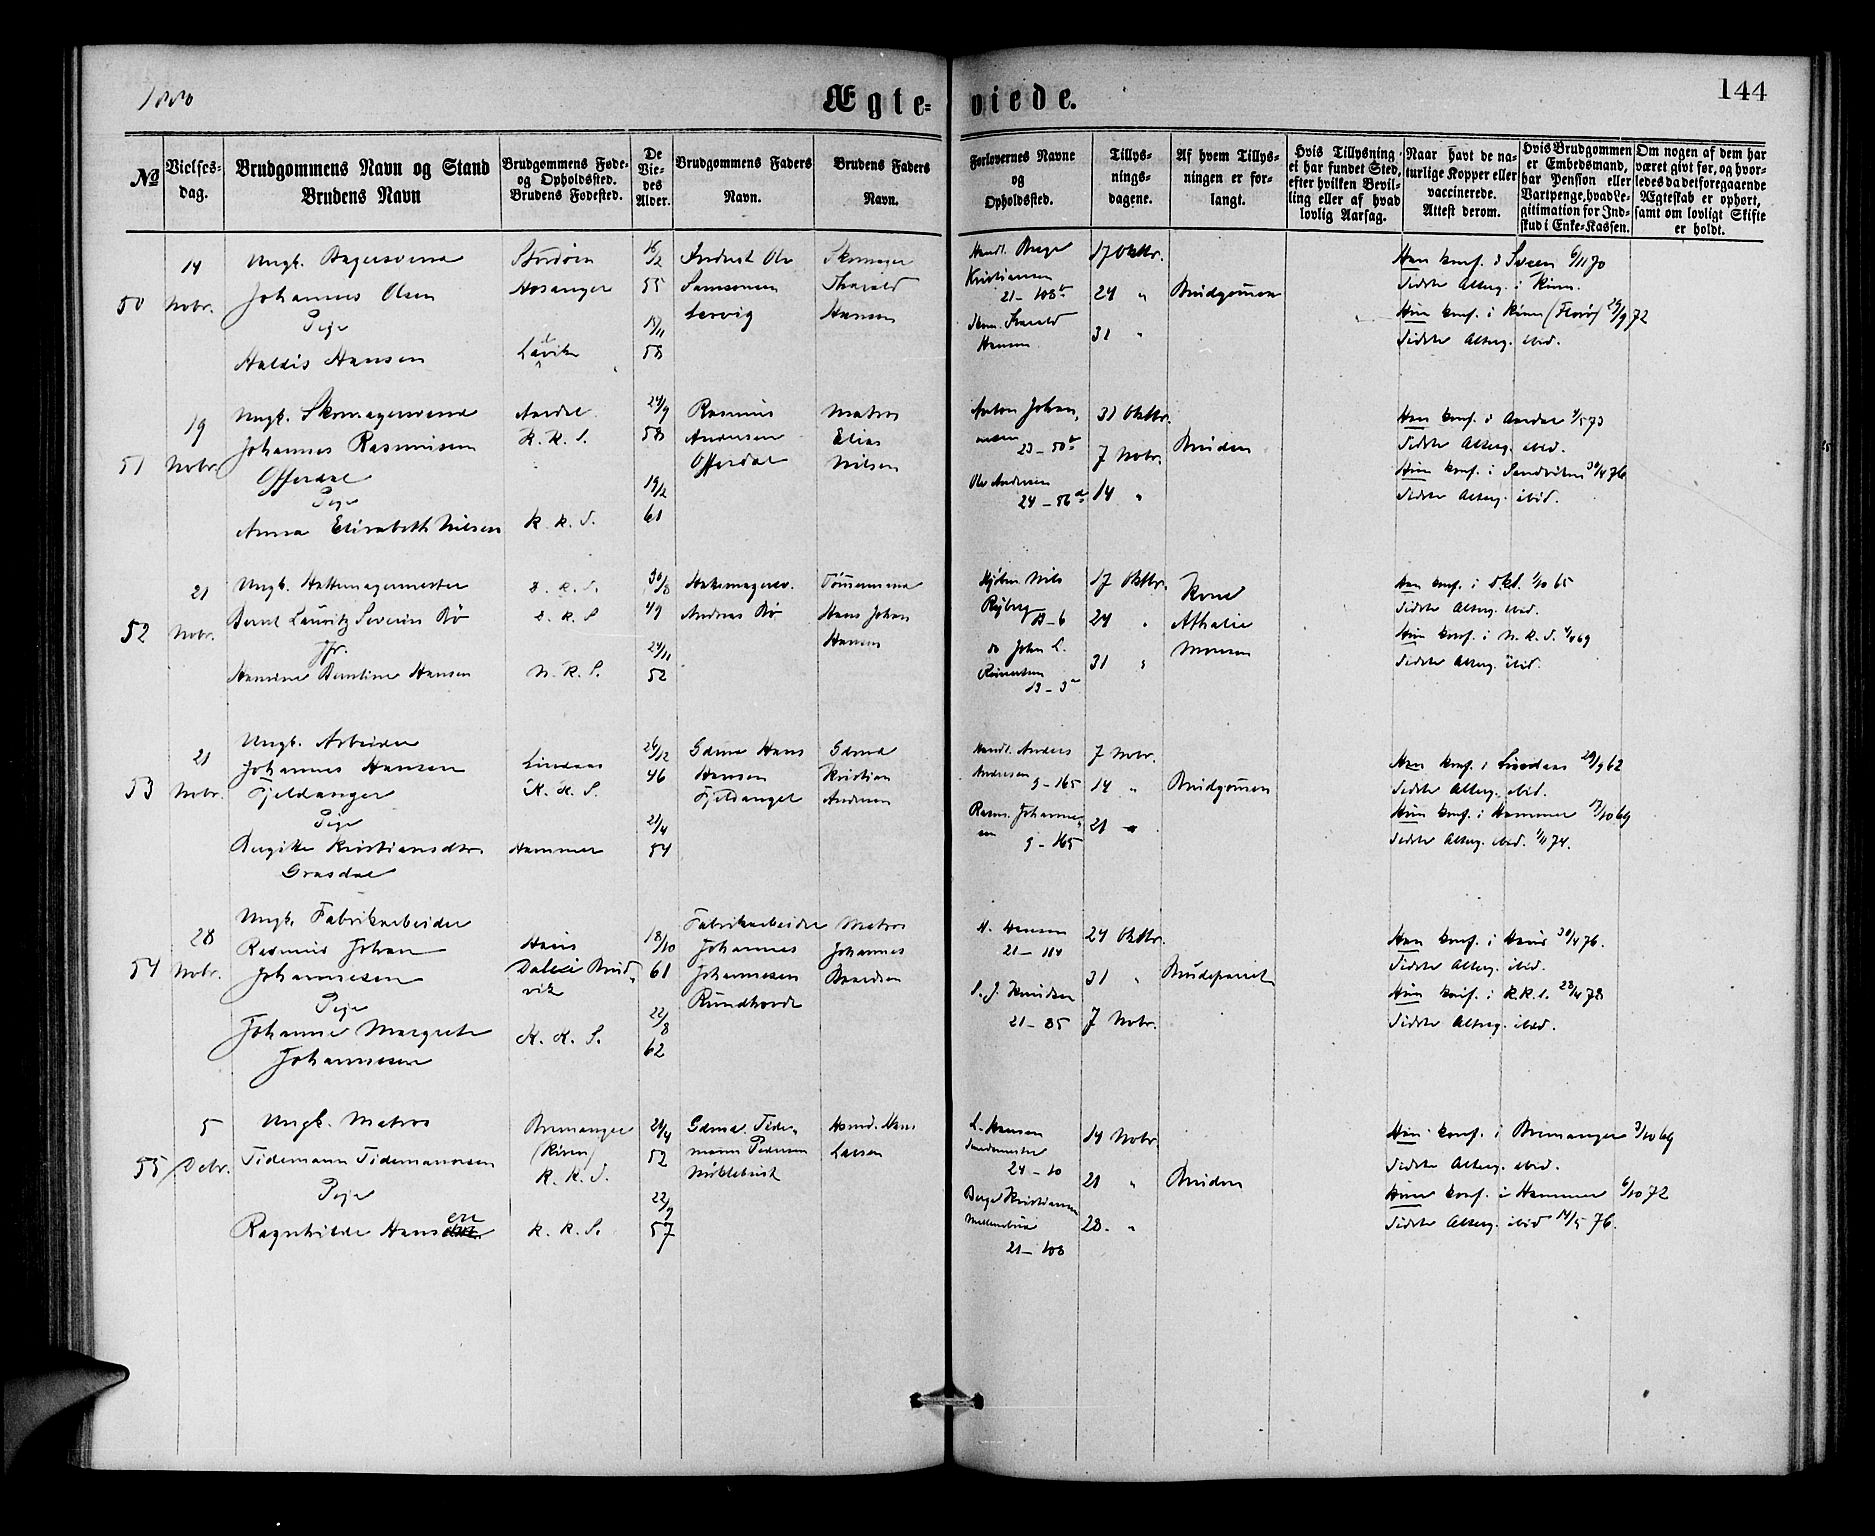 1880
Ægteviede.
144
No
Vielses-dag.
Brudgommens Navn og Stand
Brudens Navn
Brudgommens Føde- og Opholdssted.
Brudens Fødested.
De Viedes Alder.
Brudgommens Faders Navn.
Brudens Faders Navn.
Forlovernes Navne og Opholdssted.
Tillysningsdagene.
Af hvem Tillysningen er forlangt.
Hvis Tillysning ei har fundet Sted, efter hvilken Bevilling eller af hvad lovlig Aarsag.
Naar havt de naturlige Kopper eller vaccinerede. Attest derom.
Hvis Brudgommen er Embedsmand, har Pension eller Vartpenge, hvad Legitimation for Indskud i Enke-Kassen.
Om nogen af dem har været givt før, og hvorledes da det foregaaende Ægteskab er ophørt, samt om lovligt Skifte er holdt.
50
14 Nobr.
Ungk. Bagersvend
Johannes Olsen
Pige
Haldis Hansen
Hosanger
Lavik
55
15/11
58
Samsonsen
Skomager
Harald
Hansen
Handl. Berge
Kristiansen
21 – 108
Skom. Harald
Hansen
17 Oktbr.
24 "
31 "
Brudgommen
Han konf. i Sveen 6/11 70
Sidste Alterg. i Kinn.
Hun konf. i Kinn (Florø) 29/9 72
Sidste Alterg. ibid.
51
19 Nobr.
Ungk. Skomagersvend
Johannes Rasmusen
Offerdal
Pige
Anna Elisabeth Nilsen
Aardal.
K. K. S.
K. K. S.
24/9
58
19/2
61
Rasmus
Andersen
Offerdal
Matros
Elias
Nilsen
Anton Johan
23 – 50
Ole Andersen
24 – 56
31 Oktbr.
7 Nobr.
14 "
Bruden
Han konf. i Aardal 4/5 73
Sidste Alterg. ibid.
Hun konf. i Sandviken 30/4 76
Sidste Alterg. ibid.
52
21 Nobr.
Ungk. Hattemagermester
Bernt Lauritz Severin Bø
Jfr.
Hansine Berntine Hansen
D. K. S.
D. K. S
N. K. S.
30/8
49
24/11
52
Hattemagersv.
Andreas Bø
Tømmermand
Hans Johan
Hansen
Nils
Ryberg
do John L.
Reinertsen
13 – 3
17 Oktbr.
24 "
31 "
Kone
Athalie
Monsen
Han konf. i Dkd. 1/10 65
Sidste Alterg. ibid.
Hun konf. i N. K. S. 4/4 69
Sidste Alterg. ibid.
53
21 Nobr.
Ungk. Arbeider
Johannes Hansen
Fjeldanger
Pige
Birgitte Kristiansdtr.
Grasdal
Lindaas
K. K. S.
Hammer
26/12
46
21/4
54
Gdmd Hans
Hansen
Fjeldanger
Gdmd
Kristian
Andersen
Handl. Anders
Andresen
9 – 165
Rasm. Johannesen
9 – 165
7 Nobr.
14 "
21 "
Brudgommen
Han konf. i Lindaas 28/9 62
Sidste Alterg. ibid.
Hun konf. i Hammer 17/10 69
Sidste Alterg. ibid. 1/11 74.
54
28 Nobr.
Ungk. Fabrikarbeider
Rasmus Johan
Johannesen
Pige
Johanne Margrete
Johannesen
Haus
Dalevik
K. K. S.
18/10
61
22/8
62
Fabrikarbeider
Johannes
Johannesen
Rundhovde
Matros
Johannes
H. Hansen
21 – 114
S. J. Knudsen
21 – 85
24 Oktbr.
31 "
7 Nobr.
Brudeparret
Han konf. i Haus 30/4 76.
Sidste Alterg. ibid.
Hun konf. i K. K. S. 28/4 78
Sidste Alterg. ibid.
55
5 Debr.
Ungk. Matros
Tidemann Tidemannsen
Pige
Ragnhilde Hansen
Bremanger
(Kinn)
K. K. S.
K. K. S.
24/4
52
22/9
57
Gdmd. Tidemann Pedersen
Myklebust
Hans
Larsen
L. Hansen
24 – 10
Berge Kristiansen
21 – 108
14 Nobr
21 "
28 "
Bruden
Han konf. i Bremanger 3/10 69
Sidste Alterg. ibid.
Hun konf. i Hammer 6/10 72
Sidste Alterg. ibid 14/5 76.